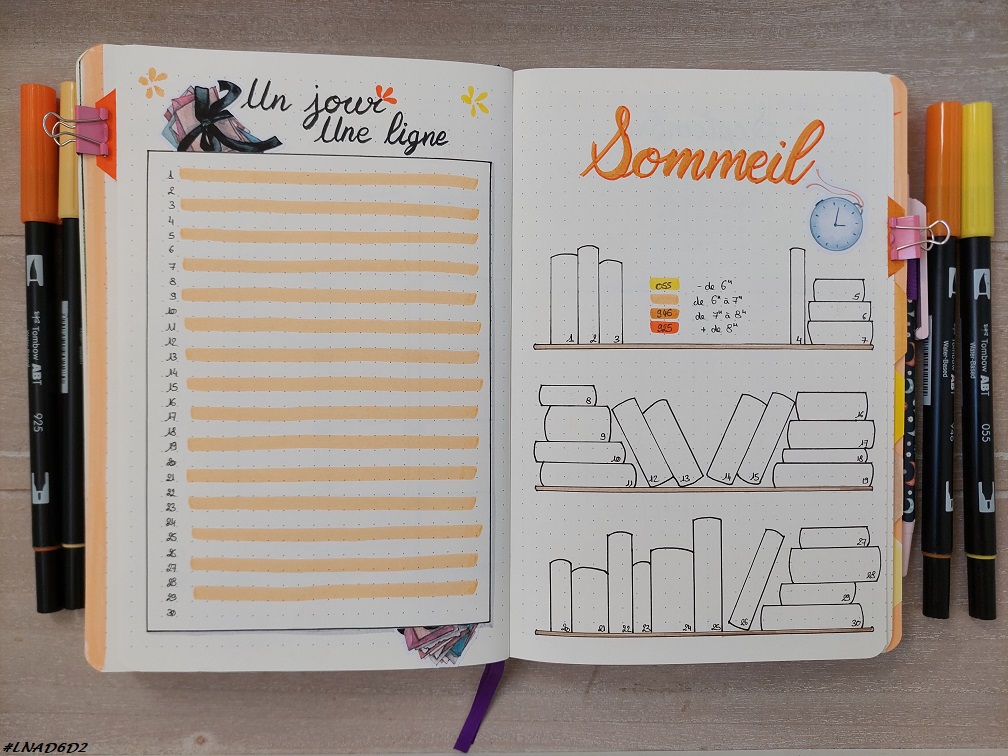 Un jour
Une ligne
1
2
3
4
5
6
7
8
9
10
11
12
13
14
15
16
17
18
19
20
21
22
23
24
25
26
27
28
29
30
Sommeil
055 - de 6h
de 6h à 7h
946 de 7h à 8h
925 + de 8h
1 2 3 4 5
6
7
8
9
10
11 12 13 14 15 16
17
18
19
20 21 22 23 24 25 26 27
28
29
30
Tombow ABT
925
Tombow ABT
Water-Based
Tombow ABT
Water-Based
055
#LNAD6D2